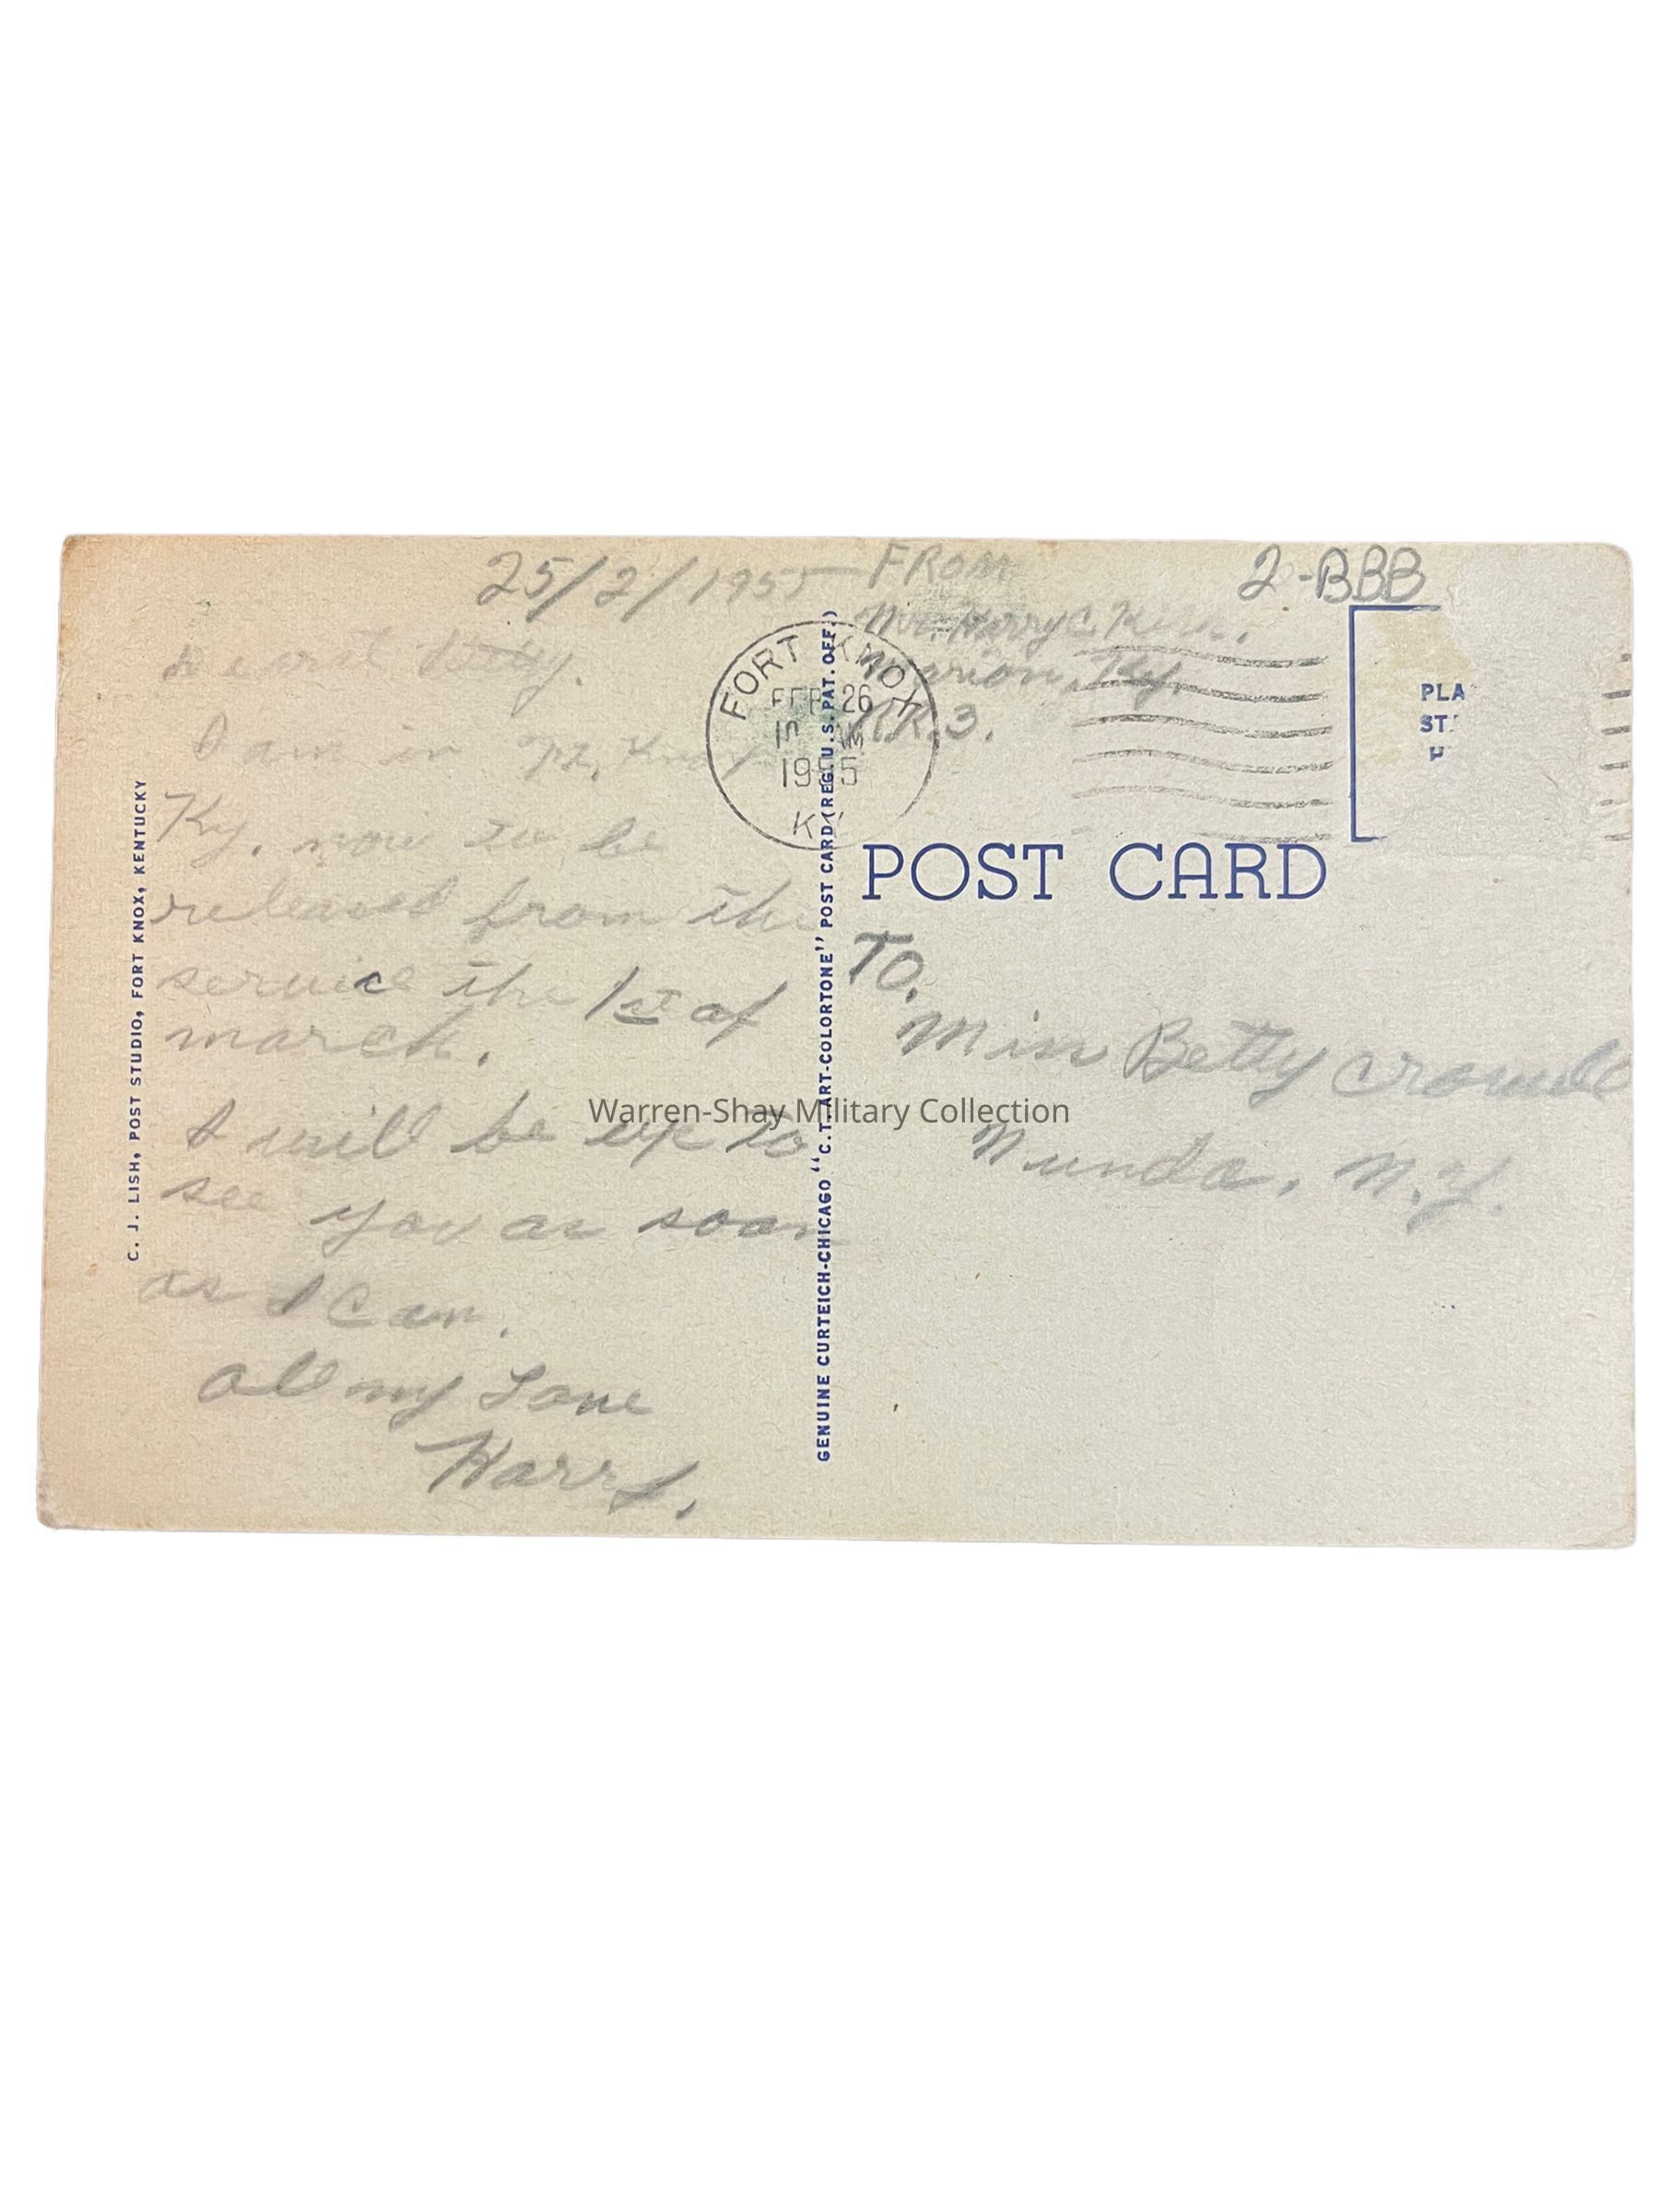 25/2/1955
Dearest Betty.
I am in Ft. Knox
Ky. now to be
released from the
service the 1st of
march.
I will be up to
see you as soon
as I can.
All my Love
Harry.
C. J. LISH, POST STUDIO, FORT KNOX, KENTUCKY
GENUINE CURTEICH-CHICAGO "C.T. ART-COLORTONE" POST CARD (REG. U.S. PAT. OFF.)
FROM
Mr. Harry C.
Marion, Ky.
RR.3.
2-BBB
FORT KNOX
FEB 26
1955
KY
PLA
ST
H
POST CARD
TO.
Miss Betty
Nunda, N.Y.
Warren-Shay Military Collection